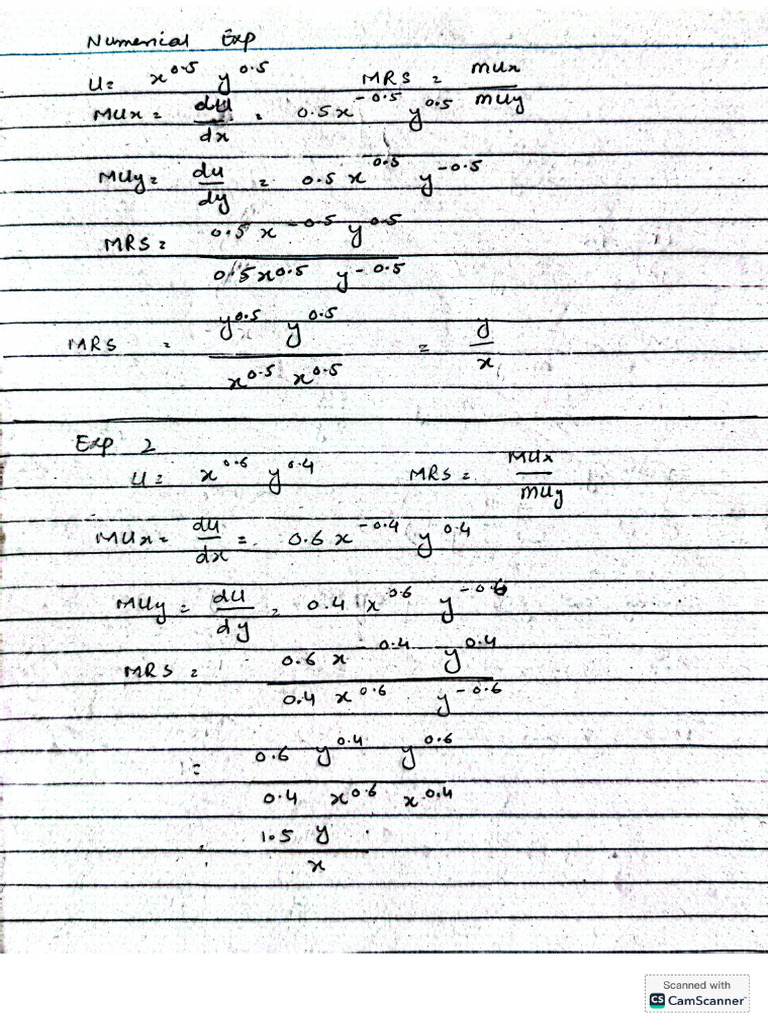 Numerical Exp
U = x^0.5 y^0.5 MRS = MUx/MUy
MUx = du/dx = 0.5x^-0.5 y^0.5
MUy = du/dy = 0.5 x^0.5 y^-0.5
MRS = 0.5 x^-0.5 y^0.5 / 0.5x^0.5 y^-0.5
MRS = y^0.5 y^0.5 / x^0.5 x^0.5 = y/x
Exp 2
U = x^0.6 y^0.4 MRS = MUx/MUy
MUx = du/dx = 0.6 x^-0.4 y^0.4
MUy = du/dy = 0.4 x^0.6 y^-0.6
MRS = 0.6 x^-0.4 y^0.4 / 0.4 x^0.6 y^-0.6
= 0.6 y^0.4 y^0.6 / 0.4 x^0.6 x^0.4
= 1.5 y / x
Scanned with
CS CamScanner